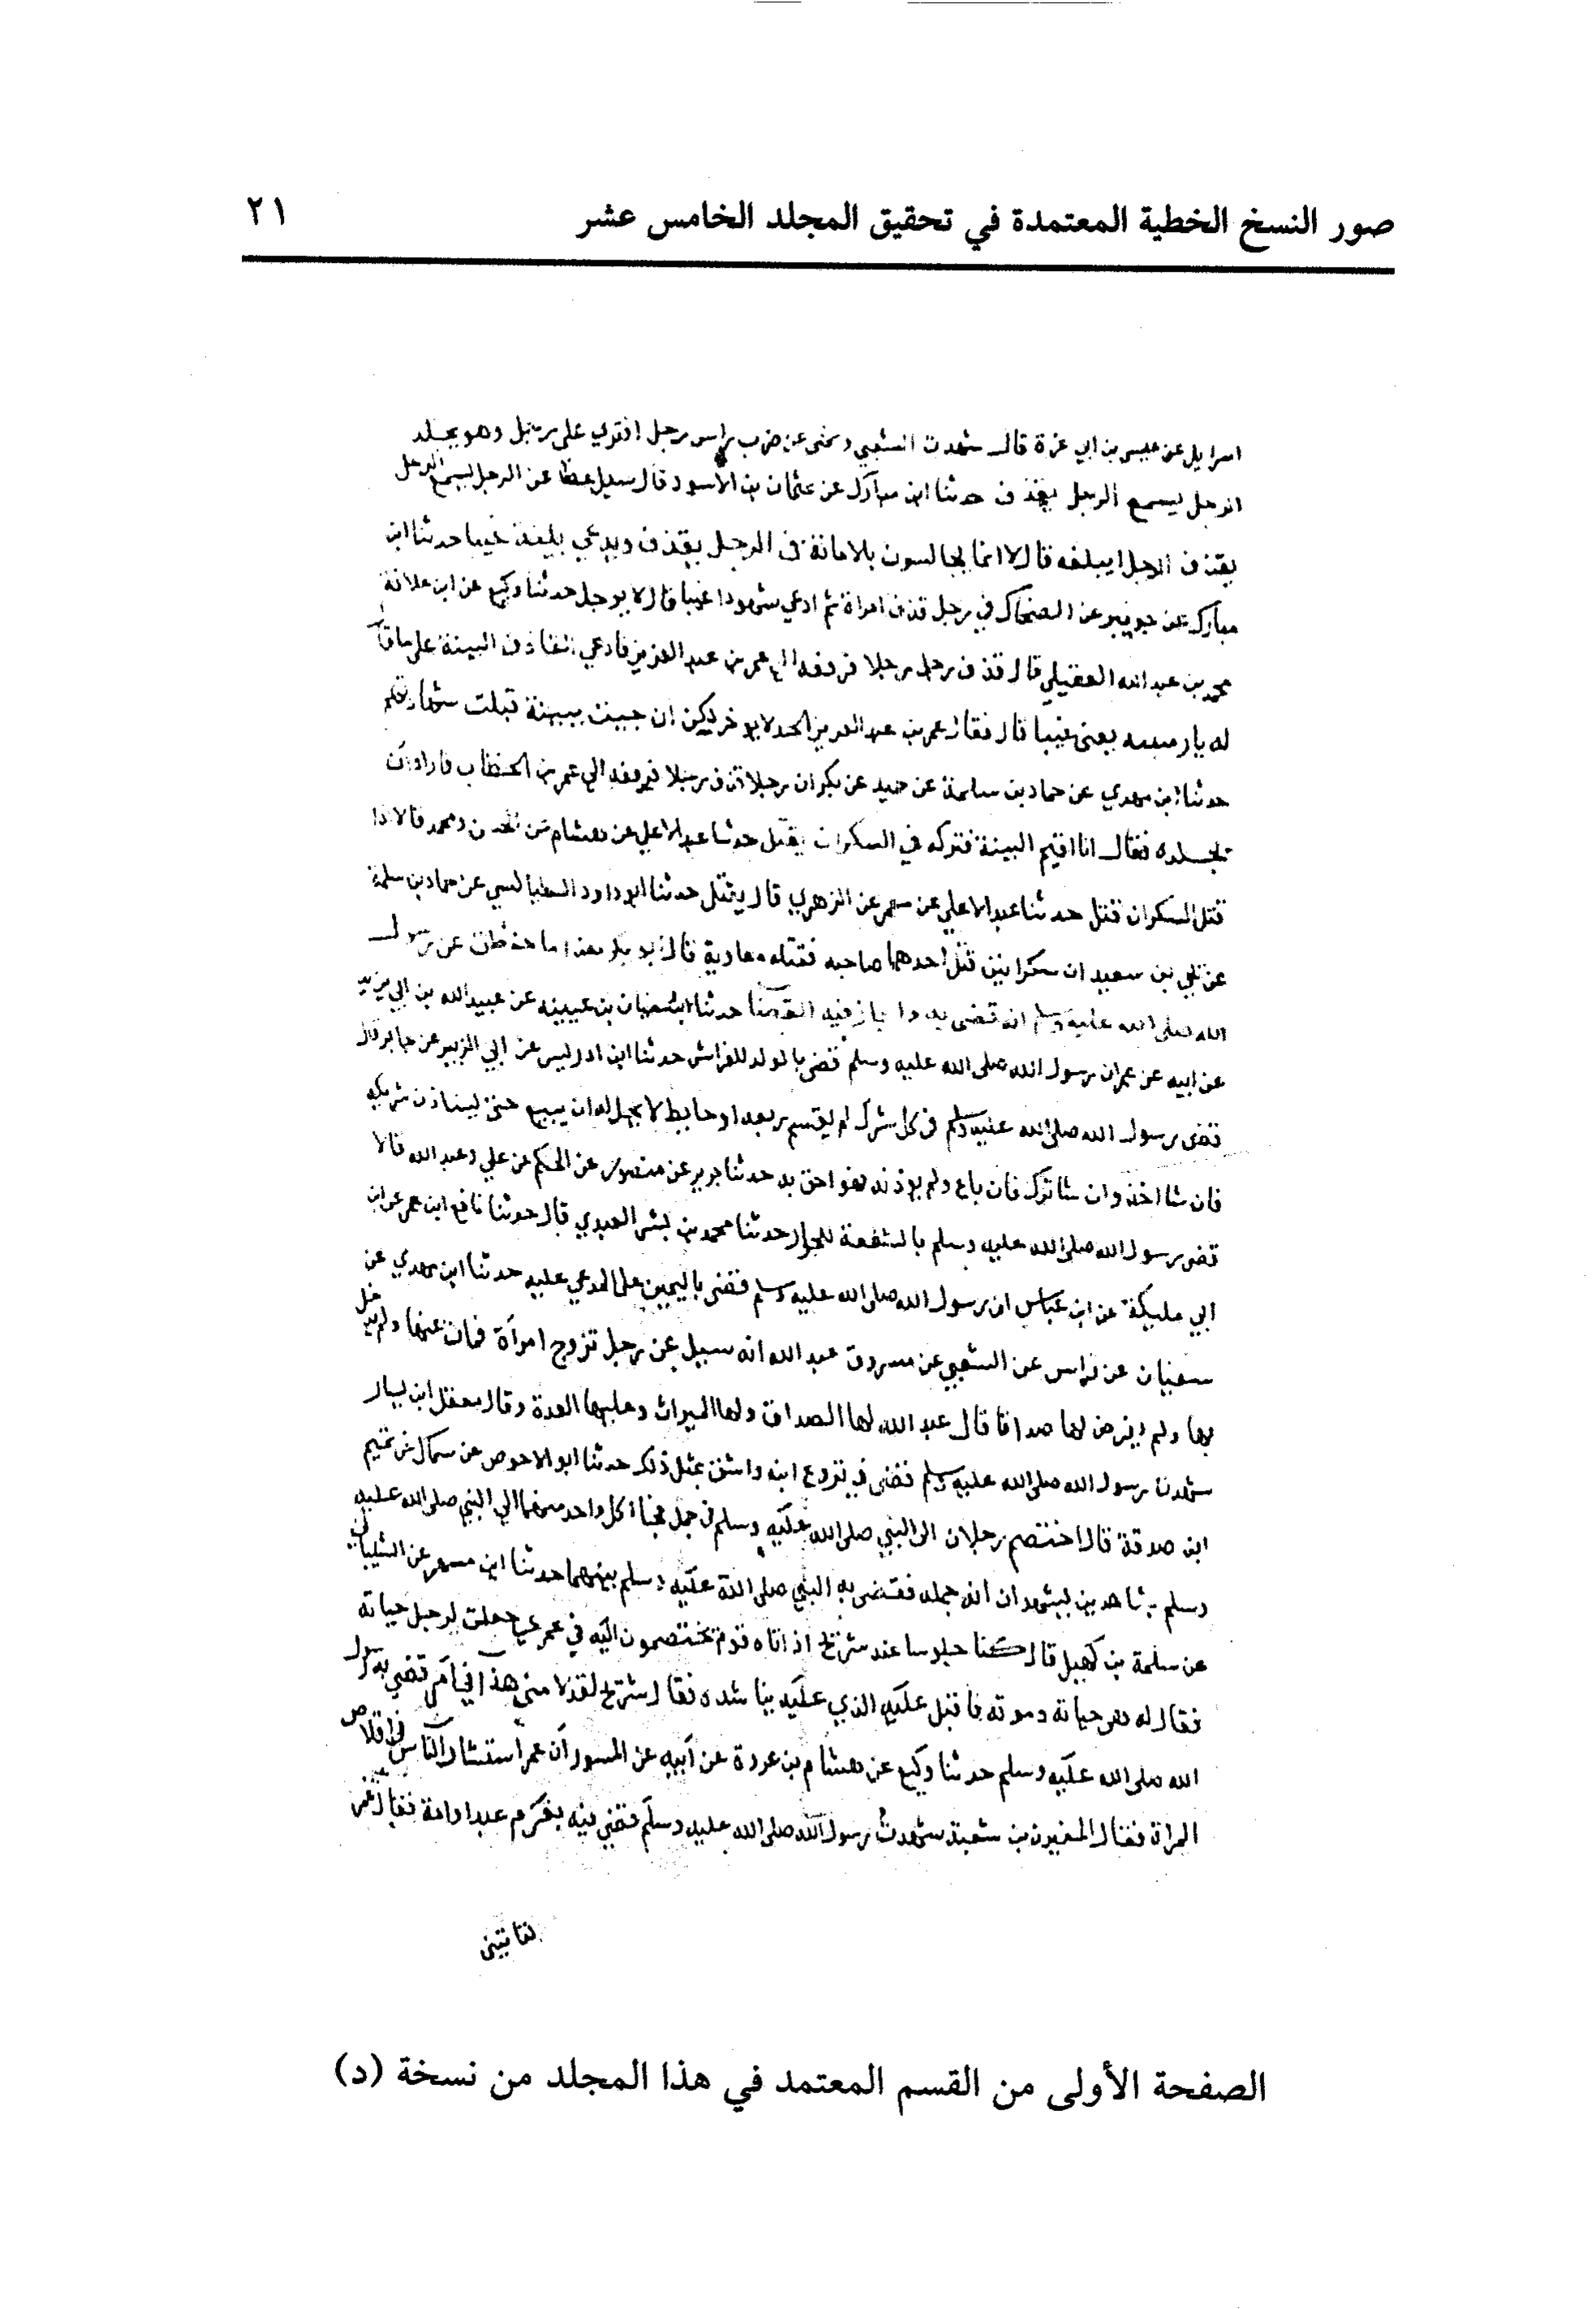 صور النسخ الخطية المعتمدة في تحقيق المجلد الخامس عشر ٢١
اسرايل عن عيسى بن ابي عزة قال شهدت الشعبي ونهى عن ضرب راس رجل افتري على رجل وهو يجلد
الرجل يسمع الرجل يقذف حدثنا ابن مبارك عن عثمان بن الأسود قال سيل عطا عن الرجل يسمع الرجل
يقذف الرجل ايبلغه قال لا انما يجالسون بالامانة في الرجل يقذف ويدعي بينة غيبا حدثنا ابن
مبارك عن جويبر عن الضحاك في رجل قذف امراة ثم ادعي شهودا غيبا قال لا يوجل حدثنا وكيع عن ابن علاثة
محمد بن عبد الله العقيلي قال قذف رجل رجلا فرفعه الي عمر بن عبد العزيز فادعي القاذف البينة على ما قال
له يعني غيبا قال فقال عمر بن عبد العزيز الحد لا يوخر لكن ان جيت ببينة قبلت شهادتهم
حدثنا ابن مهدي عن حماد بن سلمة عن حميد عن بكر ان رجلا قذف رجلا فرفعه الى عمر بن الخطاب فاراد ان
يجلده فقال انا اقيم البينة فتركه في السكران يقتل حدثنا عبد الاعلي عن هشام عن الحسن ومحمد قالا اذا
قتل السكران قتل حدثنا عبد الاعلي عن معمر عن الزهري قال يقتل حدثنا ابو داود الطيالسي عن حماد بن سلمة
عن يحيي بن سعيد ان سكرانين قتل احدهما صاحبه فقتله معاوية قال ابو بكر هذا ما حفظت عن رسول
الله صلى الله عليه وسلم انه قضى به القضا حدثنا سفيان بن عيينه عن عبيد الله بن ابي يزيد
عن ابيه عن عمر ان رسول الله صلى الله عليه وسلم قضى بالولد للفراش حدثنا ابن ادريس عن ابي الزبير عن جابر قال
قضى رسول الله صلى الله عليه وسلم في كل شرك لم يقسم ربعه او حايط لا يحل له ان يبيع حتى يستاذن شريكه
فان شا اخذ وان شا ترك فان باع ولم يوذنه فهو احق به حدثنا جرير عن منصور عن الحكم عن علي وعبد الله قالا
قضى رسول الله صلى الله عليه وسلم بالشفعة للجوار حدثنا محمد بن بشر العبدي قال حدثنا نافع ابن عمر عن ابن
ابي مليكة عن ابن عباس ان رسول الله صلى الله عليه وسلم قضى باليمين على المدعي عليه حدثنا ابن مهدي عن
سفيان عن فراس عن الشعبي عن مسروق عبد الله انه سيل عن رجل تزوج امرأة فمات عنها ولم يدخل
بها ولم يفرض لها صداقا قال عبد الله لها الصداق ولها الميراث وعليها العدة وقال معقل ابن يسار
شهدت رسول الله صلى الله عليه وسلم قضى في تزوع ابنه واشق بمثل ذلك حدثنا ابو الاحوص عن سماك عن تميم
ابن صدقة قال اختصم رجلان الى النبي صلى الله عليه وسلم في جمل فجا كل واحد منهما الي النبي صلى الله عليه
وسلم بشاهدين يشهدان انه جمله فقضى به النبي صلى الله عليه وسلم بينهما حدثنا ابن مسهر عن الشيباني
عن سلمة بن كهيل قال كنا جلوسا عند شريح اذ اتاه قوم يختصمون اليه في عمري جعلت لرجل حياته
فقال له هي حياته وموته فاقبل عليه الذي عليه يناشده فقال شريح لقد لا مني هذا في امر قضي به رسول
الله صلى الله عليه وسلم حدثنا وكيع عن هشام بن عروة عن أبيه عن المسور أن عمر استشار الناس في املاص
المراة فقال المغيرة بن شعبة شهدت رسول الله صلى الله عليه وسلم قضى فيه بغرة عبد او امة فقال عمر
لتاتيني
الصفحة الأولى من القسم المعتمد في هذا المجلد من نسخة (د)